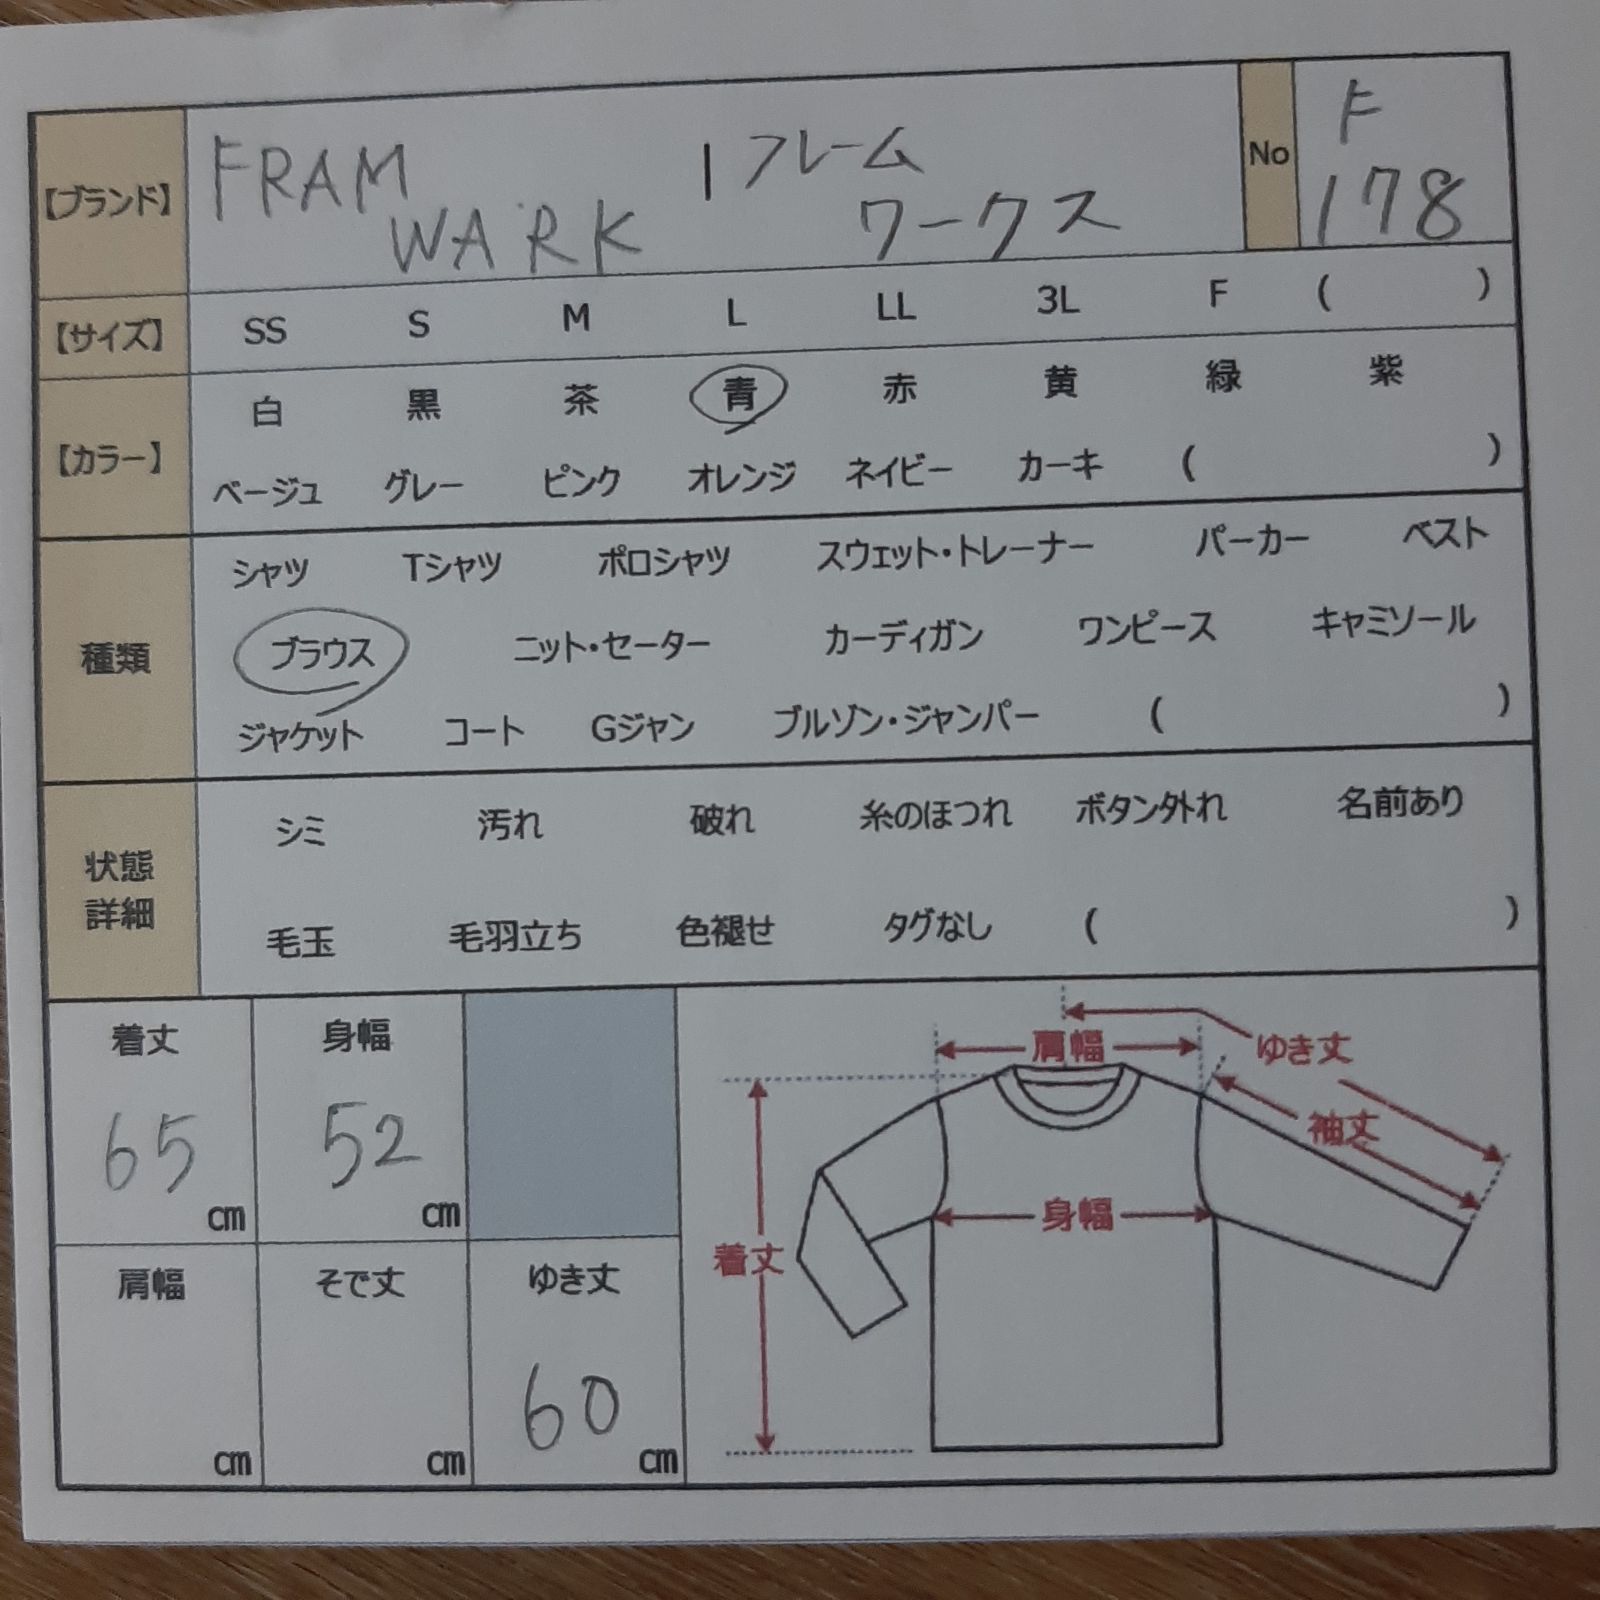 【ブランド】 FRAM WARK | フレーム ワークス No F 178
【サイズ】 SS S M L LL 3L F ( )
【カラー】 白 黒 茶 青 赤 黄 緑 紫
ベージュ グレー ピンク オレンジ ネイビー カーキ ( )
種類 シャツ Tシャツ ポロシャツ スウェット・トレーナー パーカー ベスト
ブラウス ニット・セーター カーディガン ワンピース キャミソール
ジャケット コート Gジャン ブルゾン・ジャンパー ( )
状態
詳細
シミ 汚れ 破れ 糸のほつれ ボタン外れ 名前あり
毛玉 毛羽立ち 色褪せ タグなし ( )
着丈 65 cm
身幅 52 cm
肩幅 cm
そで丈 cm
ゆき丈 60 cm
肩幅
ゆき丈
袖丈
身幅
着丈